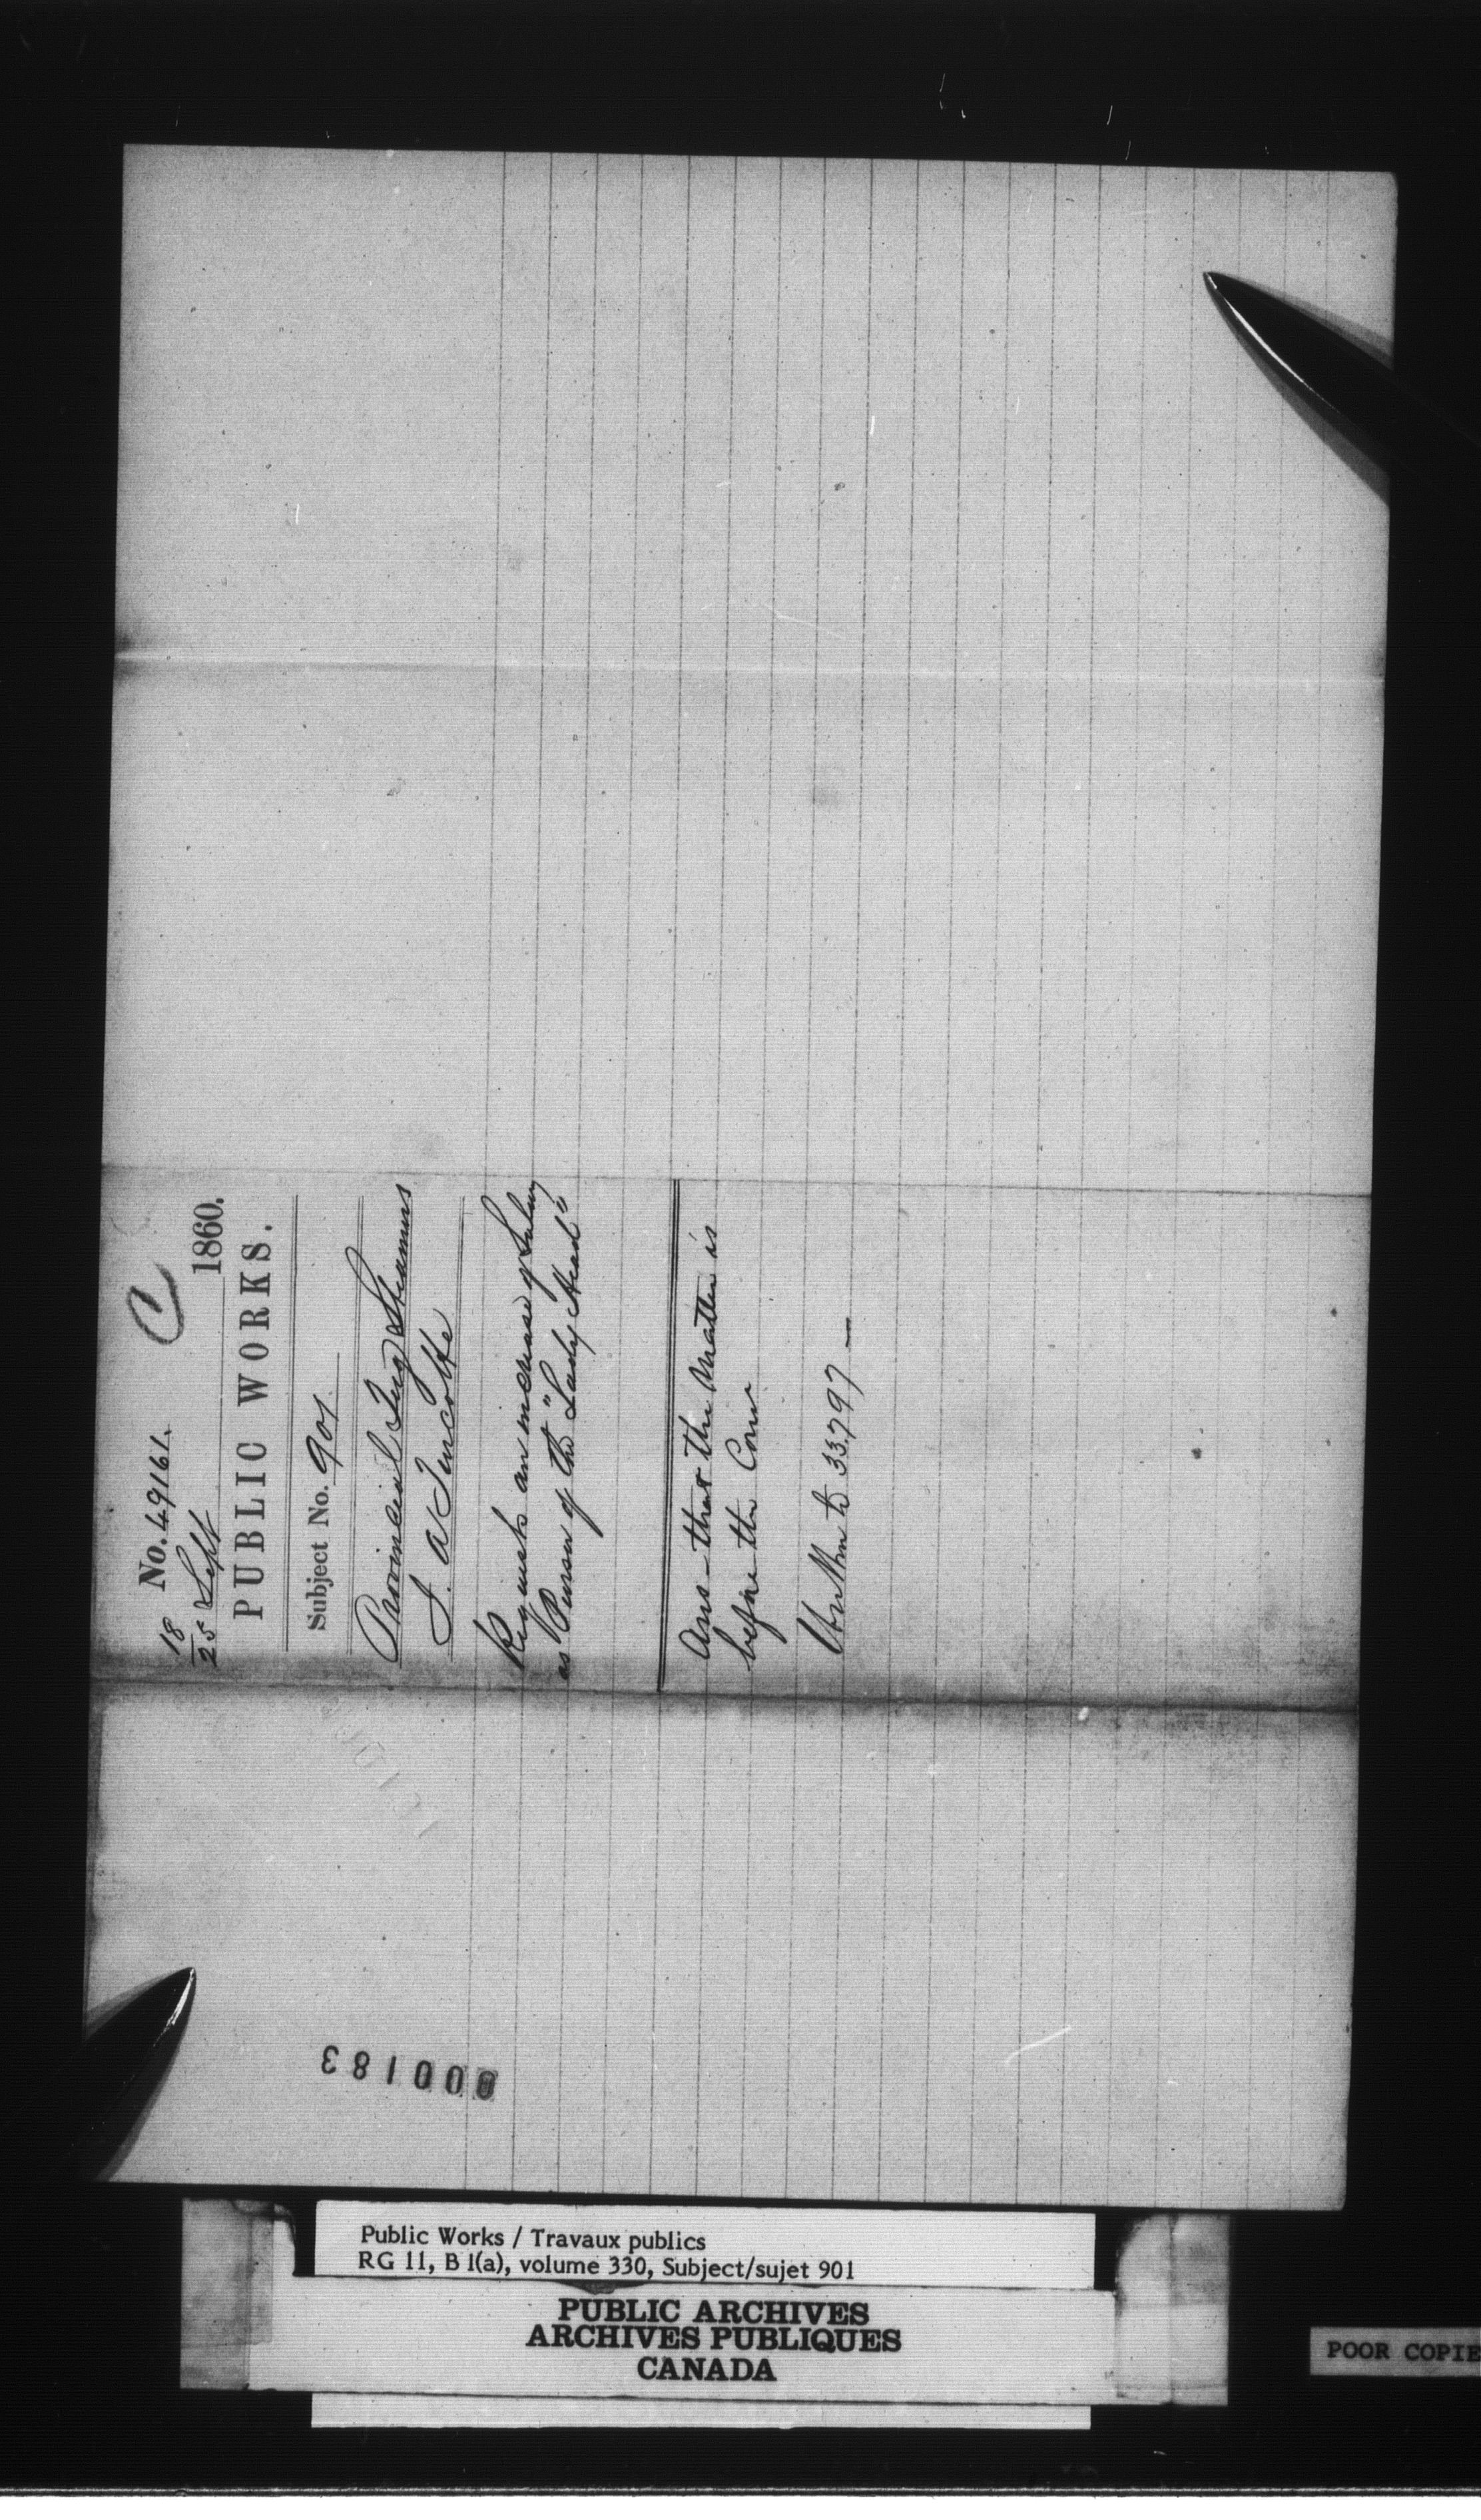 C
No. 49161.
18
25 Sept 1860.
PUBLIC WORKS.
Subject No. 901
Provincial Tug Steamers
J. A Turcotte
Requests an increase of Salary
as Purser of the "Lady Head"
Ans - that the matter is
before the Comr
33797 —
000183
Public Works / Travaux publics
RG 11, B 1(a), volume 330, Subject/sujet 901
PUBLIC ARCHIVES
ARCHIVES PUBLIQUES
CANADA
POOR COPIE